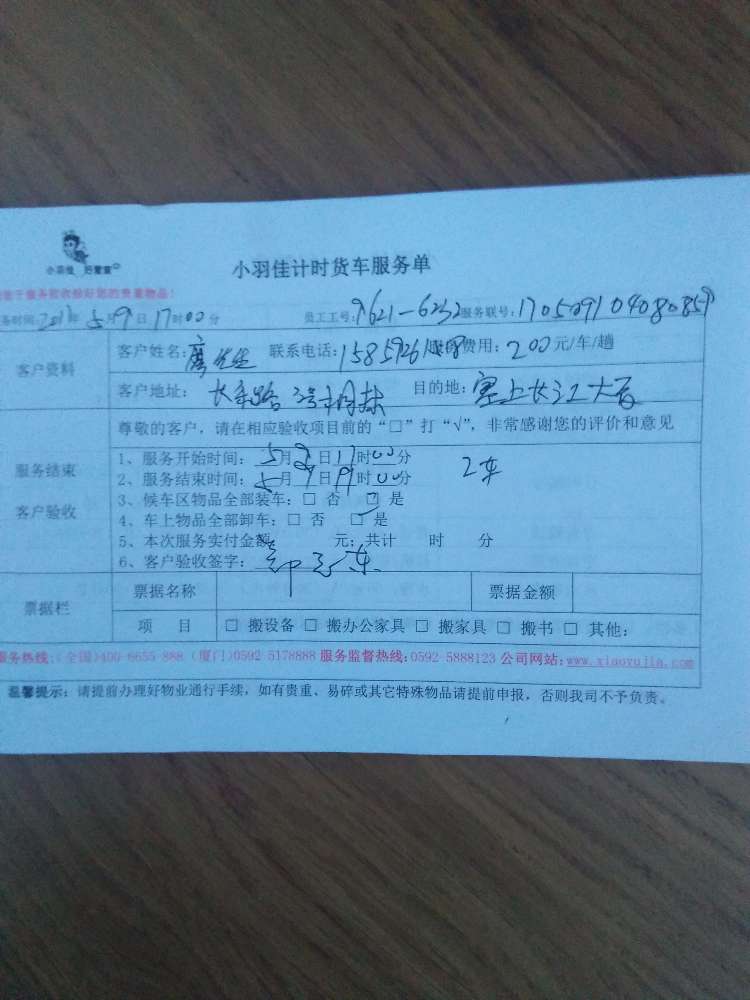 小羽佳
小羽佳计时货车服务单
务时间:2017年5月9日17时00分 员工工号:9621-6232 服务联号:
客户资料
客户姓名: 先生 联系电话: 费用:200元/车/趟
客户地址: 目的地:
尊敬的客户，请在相应验收项目前的“□”打“√”，非常感谢您的评价和意见
服务结束
客户验收
1、服务开始时间:5月9日17时00分 2车
2、服务结束时间:5月9日19时00分
3、候车区物品全部装车:□ 否 □ 是
4、车上物品全部卸车:□ 否 □ 是
5、本次服务实付金额 元;共计 时 分
6、客户验收签字:
票据栏
票据名称 票据金额
项 目 □ 搬设备 □ 搬办公家具 □ 搬家具 □ 搬书 □ 其他:
服务热线:(全国)400 6655 888 (厦门)0592 5178888 服务监督热线:0592 5888123 公司网站:www.xiaoyujia.com
温馨提示: 请提前办理好物业通行手续，如有贵重、易碎或其它特殊物品请提前申报，否则我司不予负责。